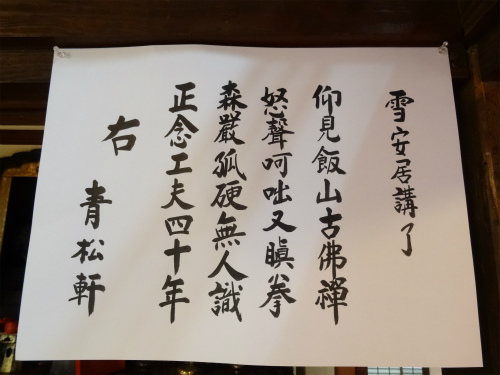 雪安居講了
仰見飯山古佛禪
怒聲呵咄又瞋拳
森嚴孤硬無人識
正念工夫四十年
右
青松軒